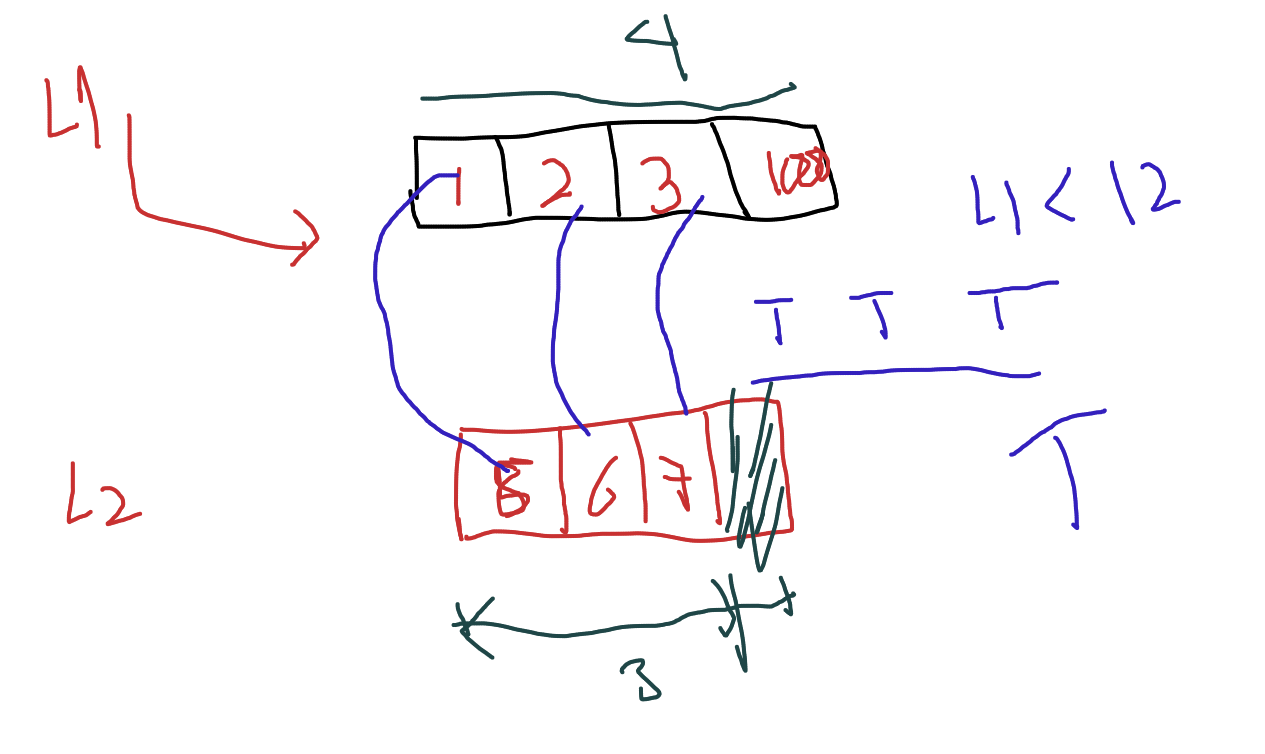 4
L1
1 2 3 100
L1 < L2
T T T
T
L2
5 6 7
3